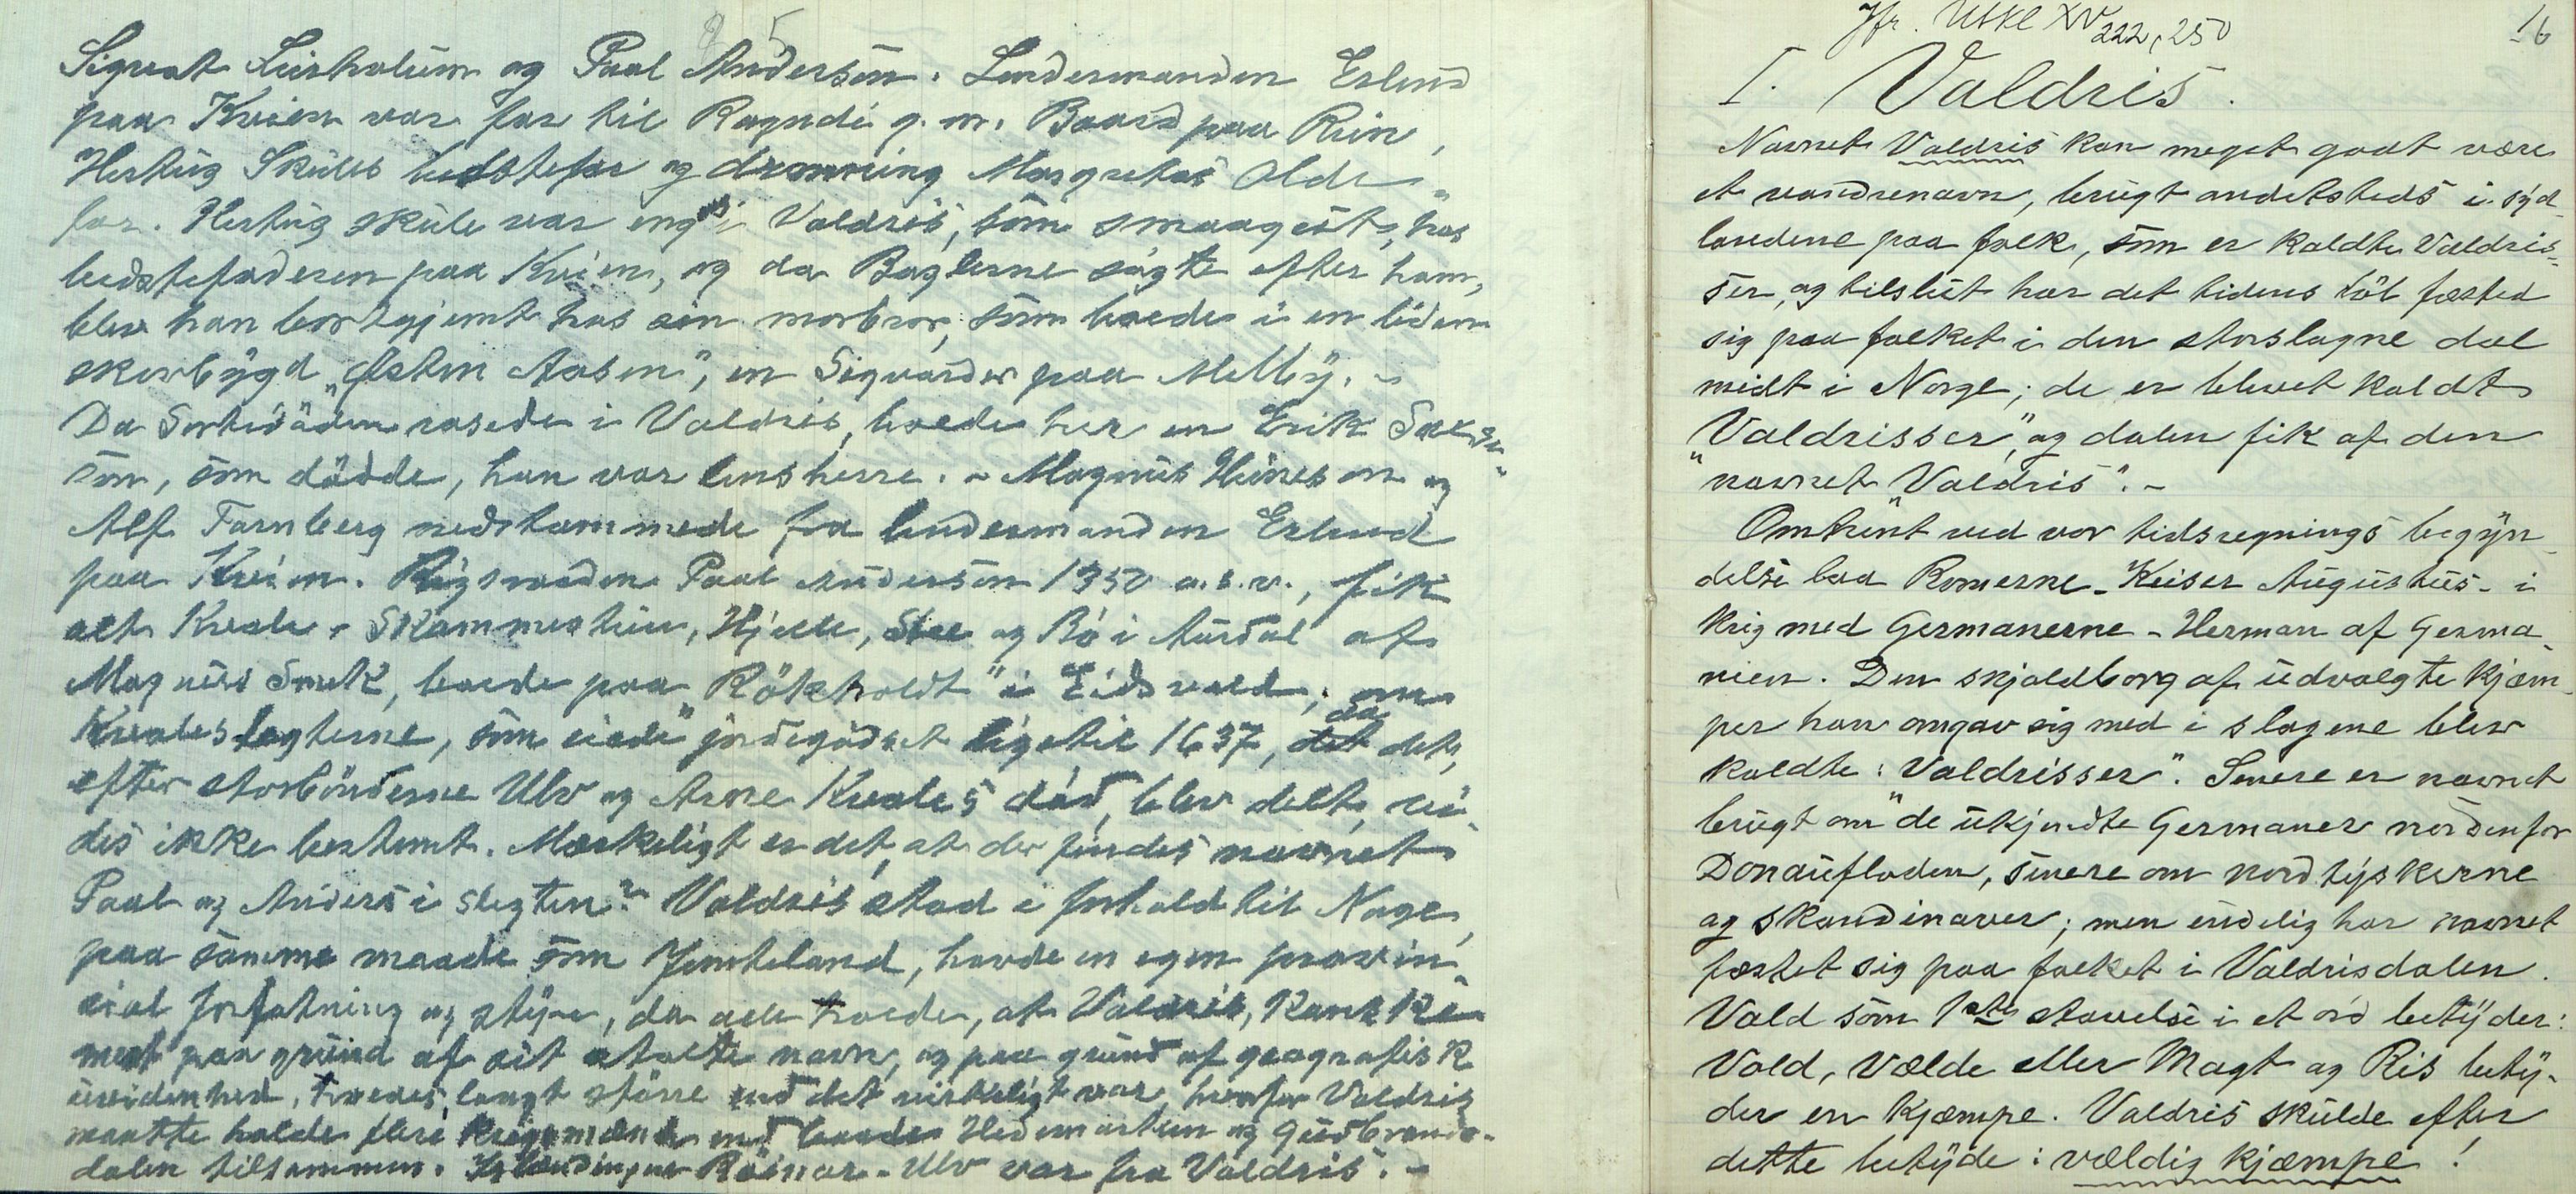 5
Sigvat Leirholum og Paal Anderson. Lendermanden Erlend
paa Kvien var far til Ragndi g.m. Baard paa Rein,
Hertug Skules bedstefar og dronning Margretas Olde-
far. Hertug Skule var ung i Valdris, som smaagut, hos
bedstefaderen paa Kvien, og da Baglerne søgte efter ham,
blev han bortgjemt hos sin morbror, som boede i en liden
skovbygd, "Østen Aasen", en Sigvarder paa Melby. -
Da Sortedöden rasede i Valdris, boede her en Erik
søn, som dödde, han var lensherre. - Magnus Hüneson og
Alf Tornberg nedstammede fra lendermanden Erlend
paa Kvien. Rigsraaden Paal Anderson 1350 o.s.v., fik
alt Kvale-Skammestein, Hjelle, Stee og Rö i Aurdal af
Magnus Smek, boede paa "Rökholdt" i Eidsvold; om
Kvaleslægterne, som eiede jordegodset ligetil 1637, da det,
efter storbönderne Ulv og Arne Kvales död, blev delt, vi-
des ikke bestemt. Mærkeligt er det, at der findes navnet
Paal og Anders i slegten? Valdris stod i forhold til Norge,
paa samme maade som Jemteland, havde en egen provin-
cial forfatning og styre, da alle troede, at Valdris, kanske
mest paa grund af sit stolte navn, og paa grund af geografisk
uvidenhed, troedes, langt större end det virkeligt var, hvorfor Valdris
maatte holde flere krigsmænd end baade Hedemarken og Gudbrands-
dalen tilsammen. Islændingen Röinar-Ulv var fra Valdris. -
Jfr. Utskl XV 222, 250
16
I. Valdris.
Navnet Valdris kan meget godt være
et vandrenavn, brugt andetsteds i syd-
landene paa folk, som er kaldte Valdris-
ser, og tilslut har det tidens löb fæsted
sig paa folket i den storslagne dal
midt i Norge; de er blevet kaldt
"Valdrisser", og dalen fik af den
navnet "Valdris". -
Omtrent ved vor tidsregnings begyn-
delse laa Romerne - Keiser Augustus - i
krig med Germanerne - Herman af Germa-
nien. Den skjoldborg af udvalgte kjæm-
per han omgav sig med i slagene blev
kaldte: "Valdrisser". Senere er navnet
brugt om de ukjendte Germaner nordenfor
Donaufloden, senere om nordtyskerne
og skandinaver; men endelig har navnet
fæstet sig paa folket i Valdrisdalen.
Vald som 1ste stavelse i et ord betyder:
Vold, Vælde eller Magt og Ris bety-
der en Kjæmpe. Valdris skulde efter
dette betyde: vældig kjæmpe!